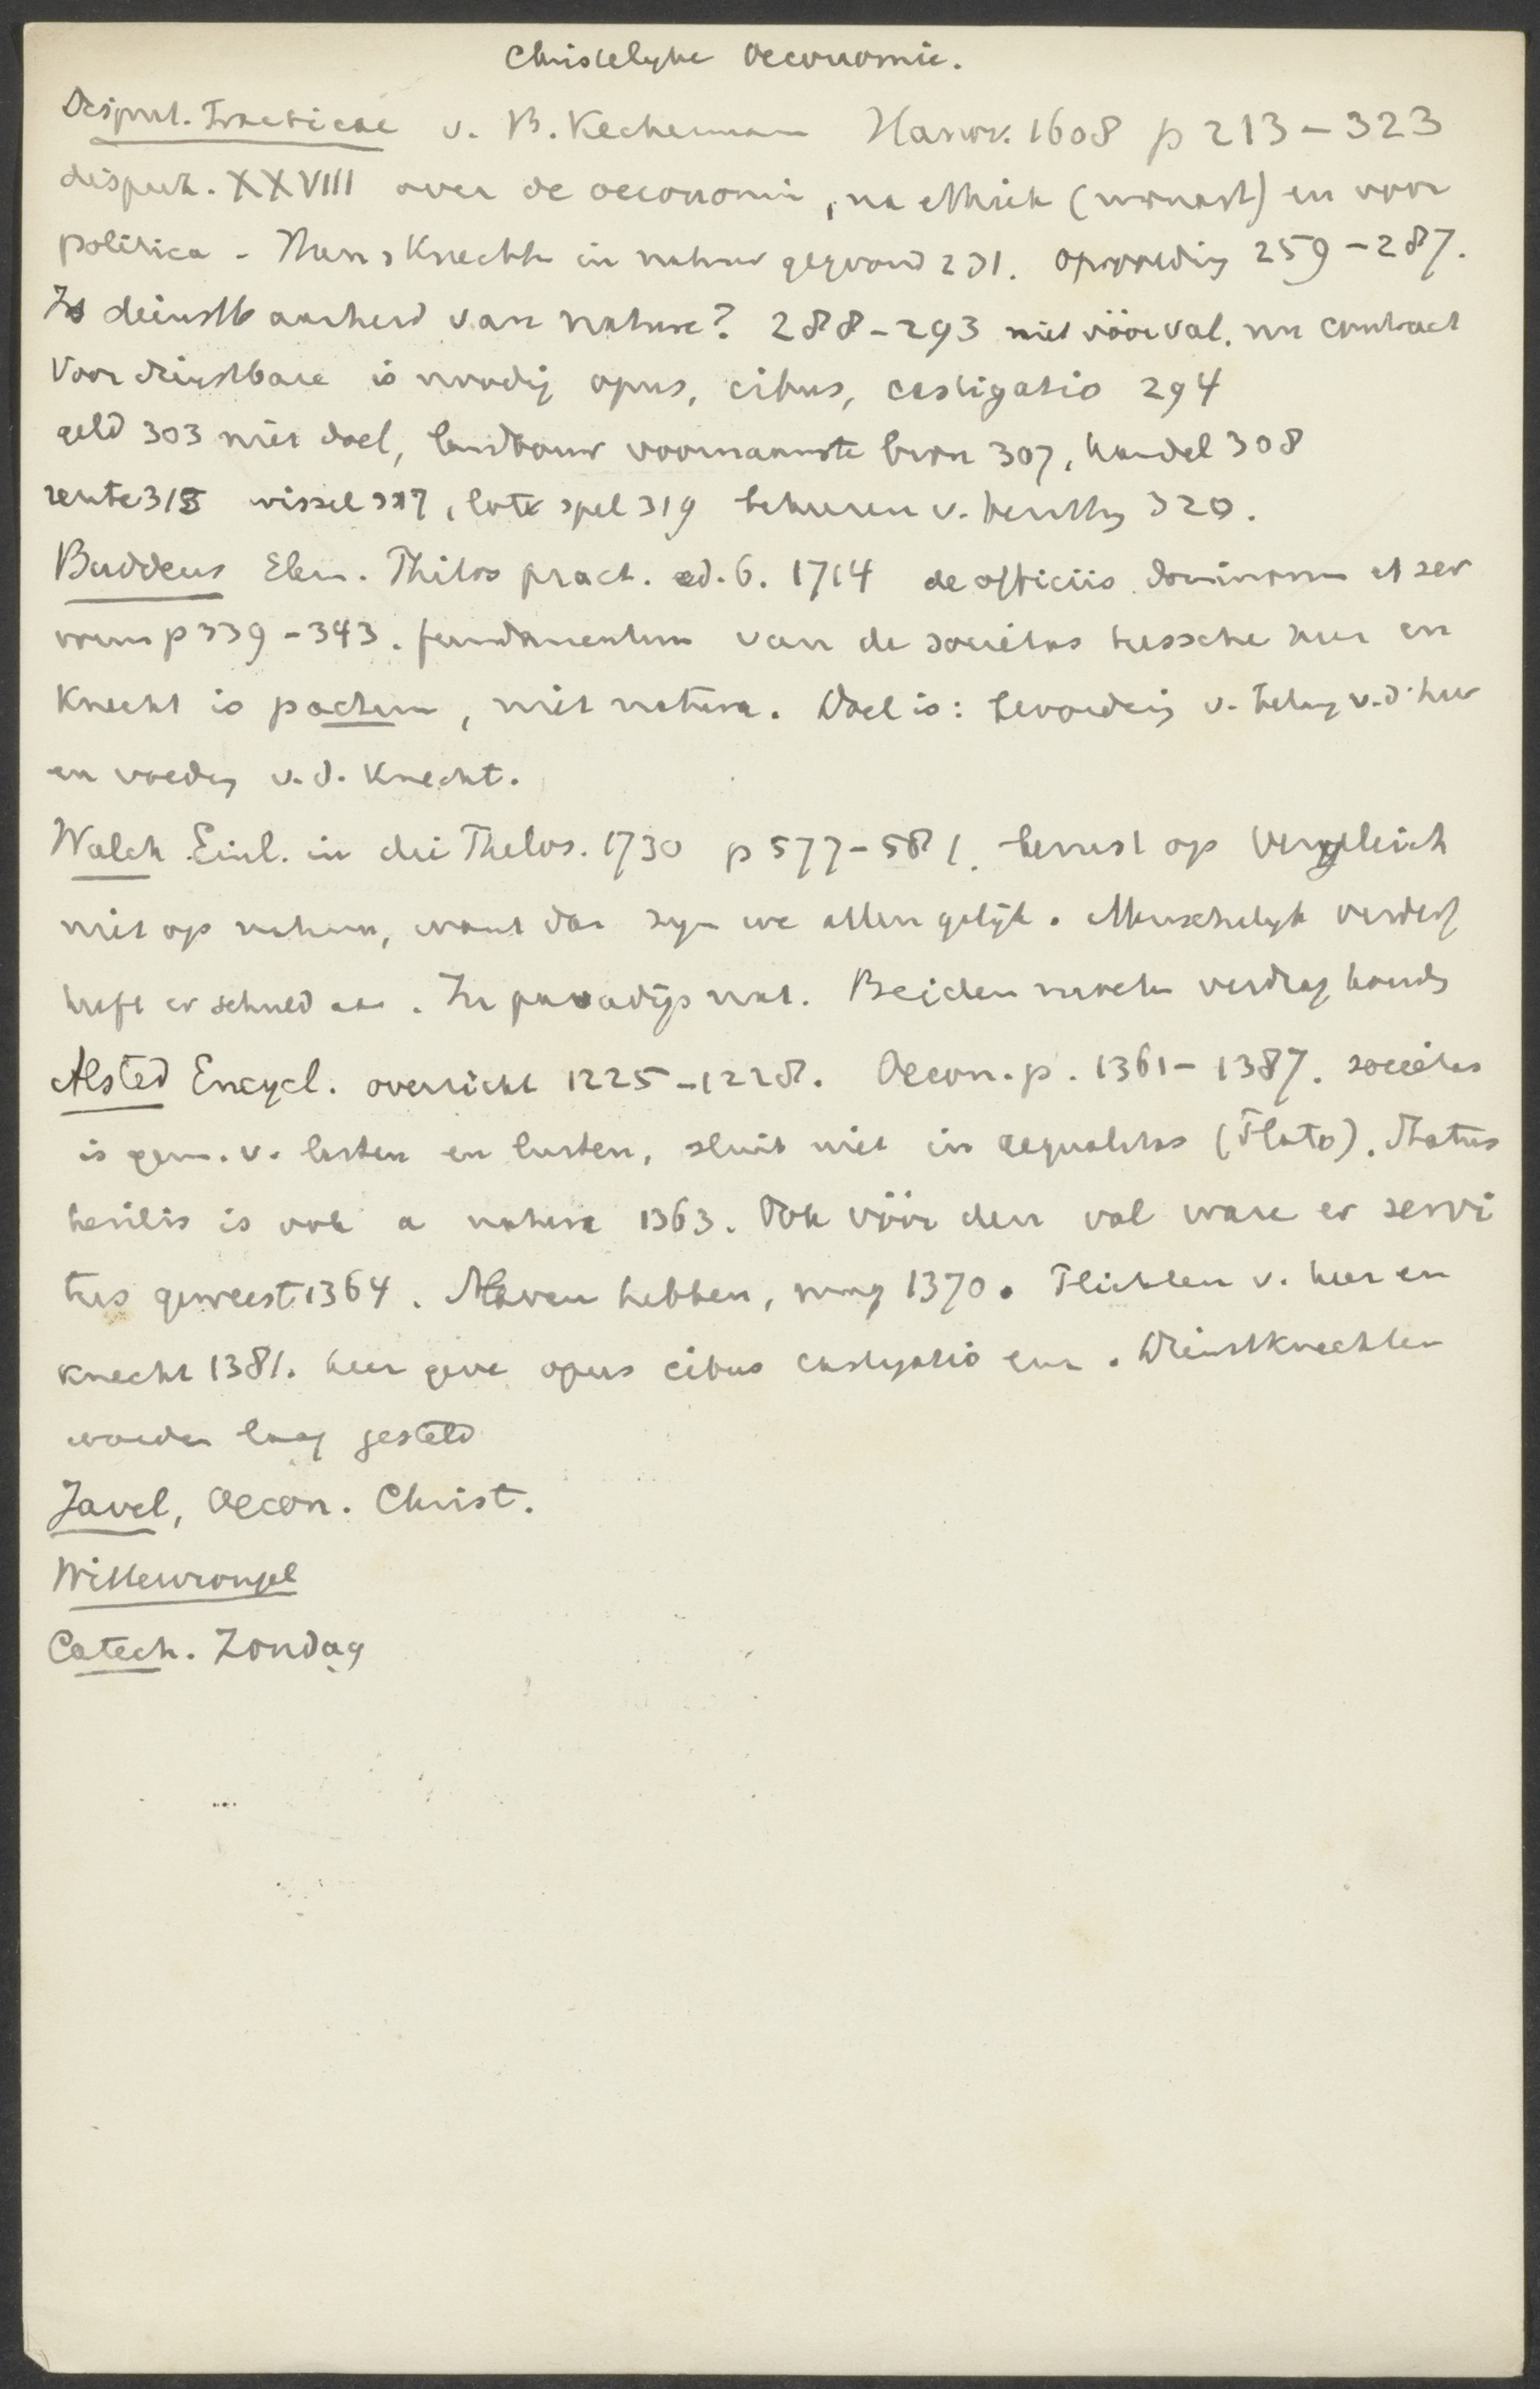 Christelyke Oeconomie.
Disput. Practicae v. B. Keckermann Hanov. 1608 p 213-323
disput. XXVIII over de oeconomie, na ethiek (monast) en voor
politica - Man, Knecht in natuur gegrond 231. Opvoeding 259-287.
Is dienstbaarheid van nature? 288-293 niet vóór val. nu contract
Voor dienstbare is noodig opus, cibus, castigatio 294
geld 303 niet doel, landbouw voornaamste bron 307, handel 308
rente 315 wissel 317, lote spel 319 beheeren v. bezitting 320.
Buddeus Elem. Philos pract. ed. 6. 1714 de officiis dominorum et ser
vorum p 339-343. fundamentum van de societas tussche heer en
Knecht is pactum, niet natura. Doel is: bevordering v. belang v.d. heer
en voeding v.d. Knecht.
Walch Einl. in die Philos. 1730 p 577-581. berust op Vergleich
niet op natuur, want dan zyn we allen gelijk. Menschelyk verderf
heeft er schuld aan. In paradijs niet. Beiden moeten verdrag houden
Alsted Encycl. overzicht 1225-1228. Oecon. p. 1361-1387. societas
is gem. v. lasten en lusten, sluit niet in aequalitas (Plato). Status
herilis is ook a natura 1363. Ook vóór den val ware er servi
tus geweest 1364. Slaven hebben, mag 1370. Plichten v. heer en
knecht 1381. heer geve opus cibus castigatio enz. Dienstknechten
worden laag gesteld
Javel, Oecon. Christ.
Wittewrongel
Catech. Zondag